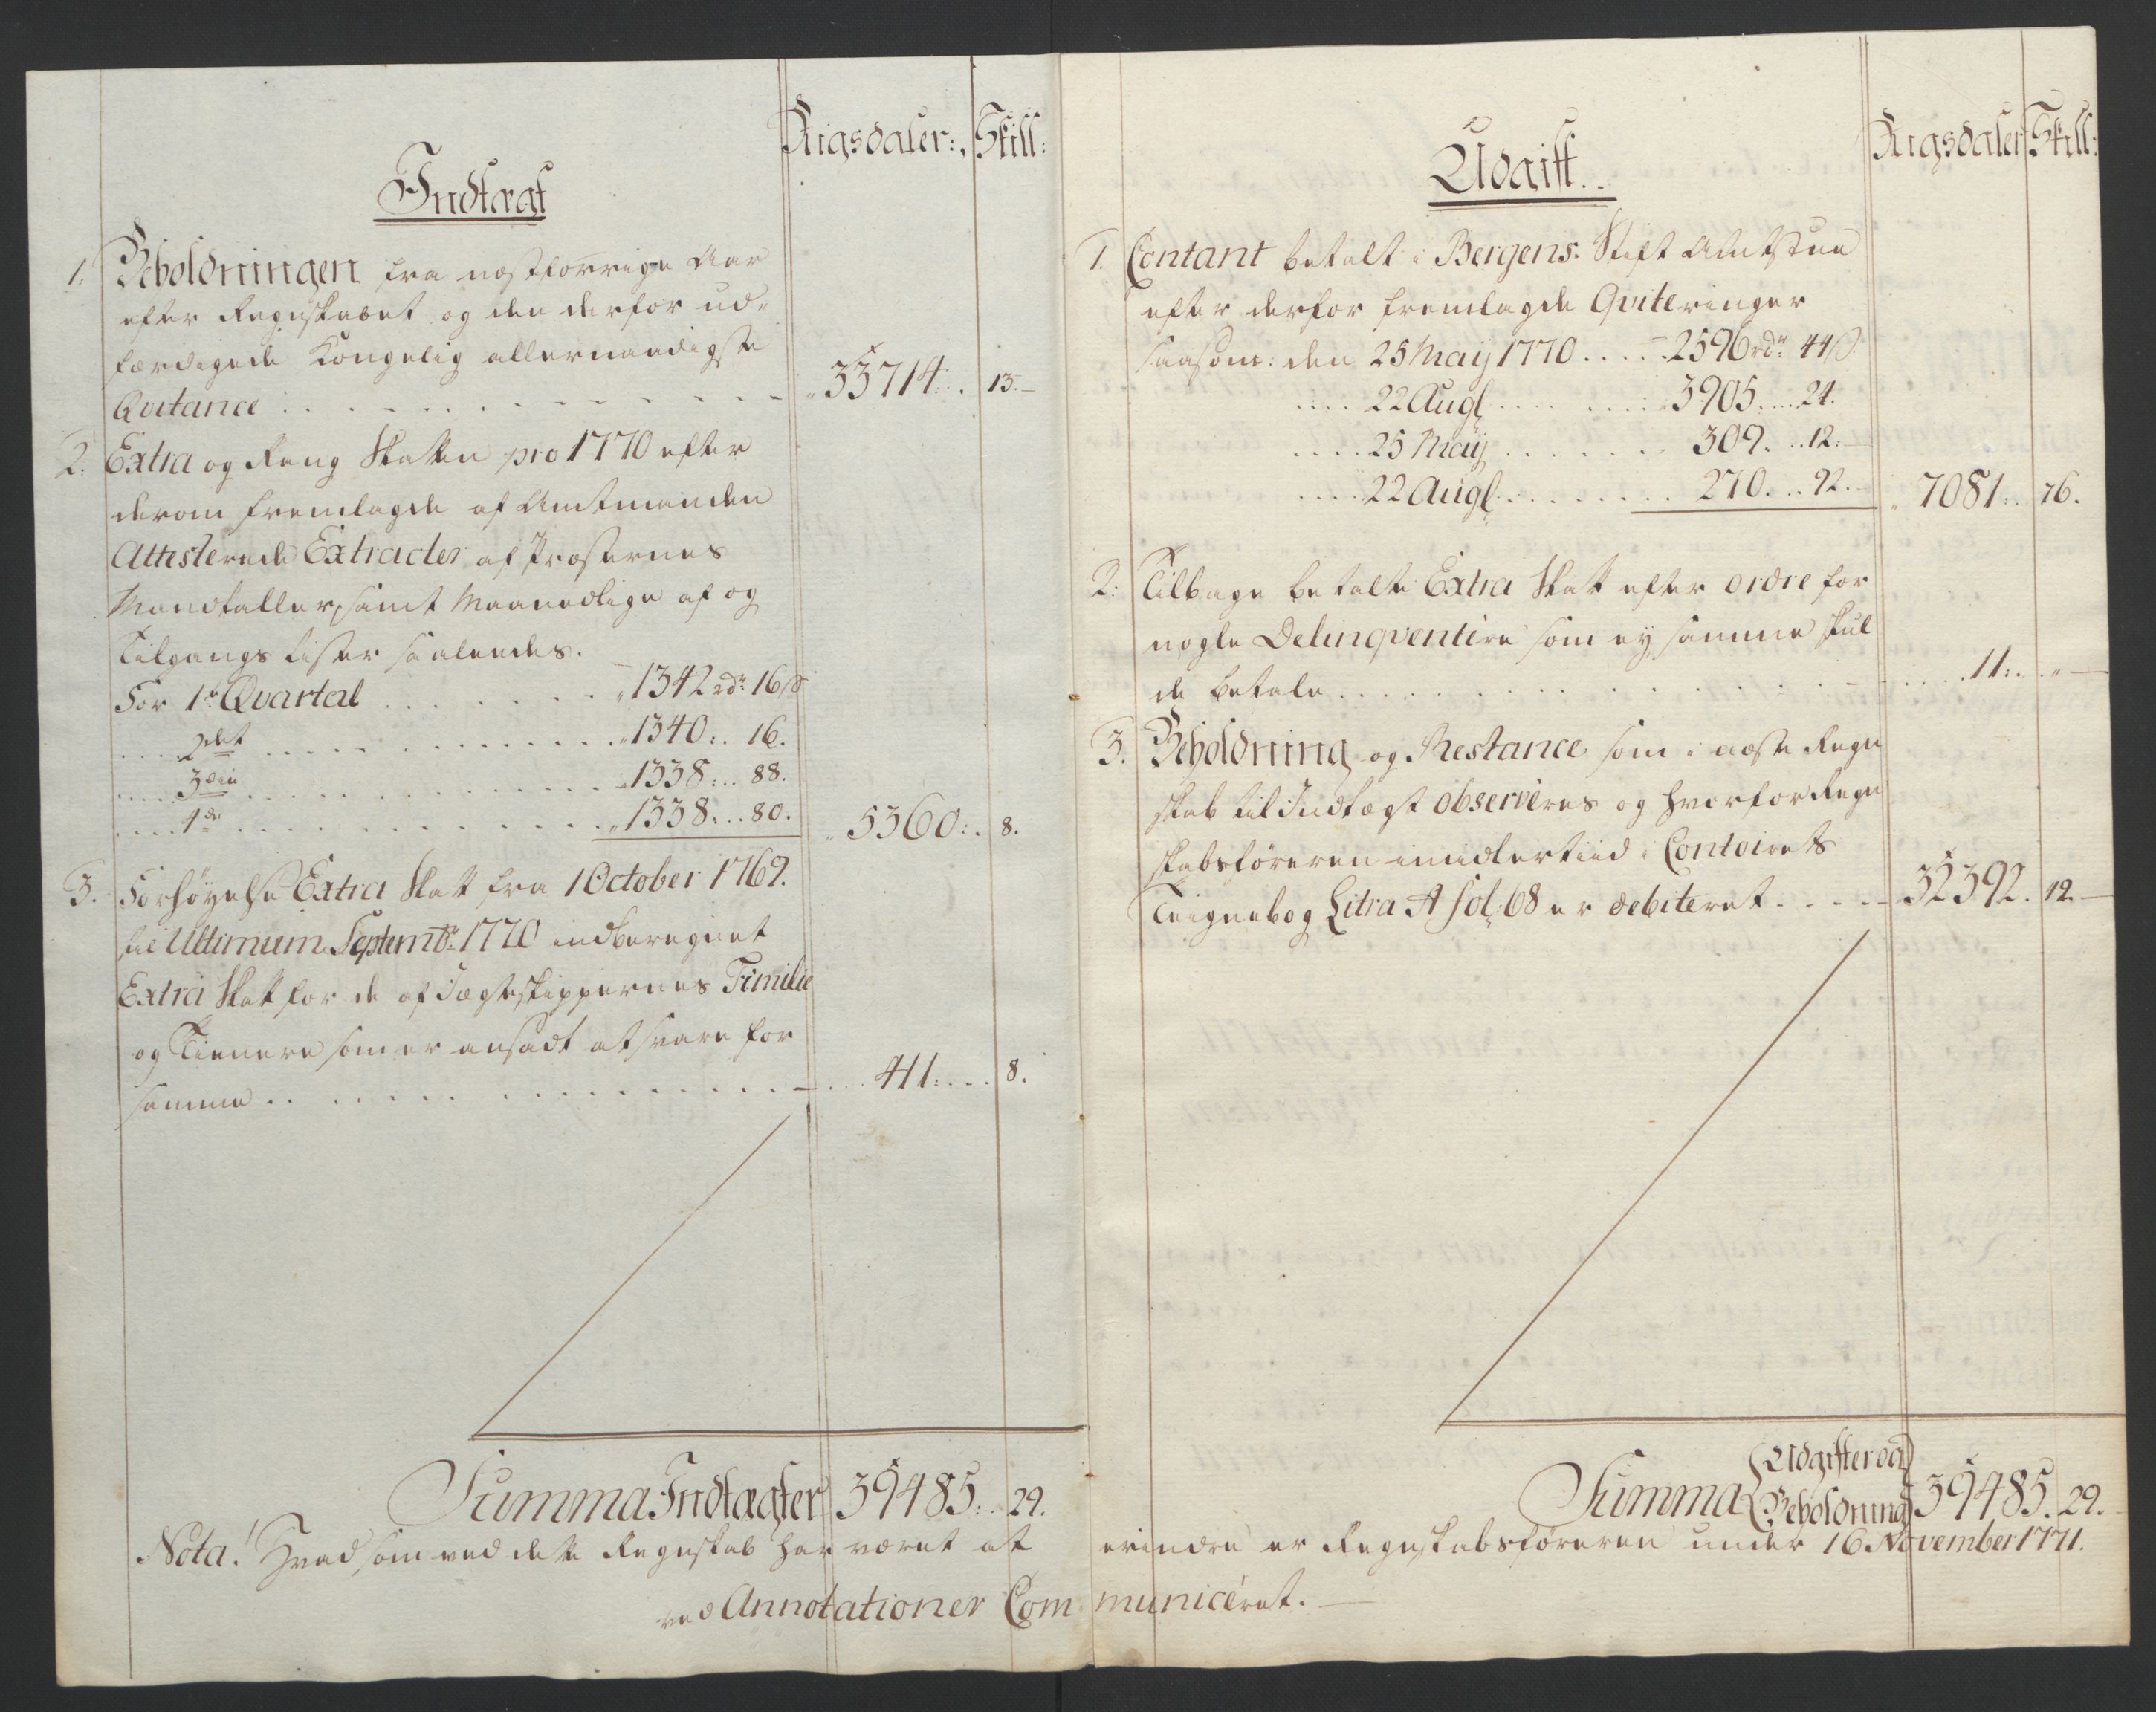 Rigsdaler:, Skill:
Indtægt
1. Beholdningen fra næstforrige Aar
efter Regnskabet og den derfor ud-
færdigede Kongelig allernaadigste
Qvitance . . . . . . . . . . 33714. . 13. —
2. Extra og Rang Skatten pro 1770 efter
derom fremlagde af Amtmanden
Attesterede Extracter af Præsternes
Mandtaller, samt Maanedlige af og
Tilgangs Lister saaledes.
For 1te Qvartal . . . . . . 1342 rdr 16 ß
. . . . 2det . . . . . . . . 1340:. 16.
. . . . 3die . . . . . . . . 1338:. . 88.
. . . . 4de . . . . . . . . 1338:. . 80. 5360:. 8.
3. Forhøyelse Extra Skatt fra 1 October 1769.
til Ultimum Septembr 1770 indberegnet
Extra Skat for de af Jægteskippernes Familie
og Tienere som er ansadt at svare for
samme . . . . . . . . . . . . 411:. . . 8.
Summa Indtægter 39485:. . 29.
Rigsdaler Skill:
Udgift . .
1. Contant betalt i Bergens Stift Amtstue
efter derfor fremlagde Qviteringer
saasom: den 25 May 1770 . . . . . 2596 rdr 44 ß
. . . . 22 Augl . . . . . . 3905. . . . 24.
. . . . 25 May . . . . . . . 309. . . 12. —
. . . . 22 Augl . . . . . . . 270. . . 92. — 7081:. 76.
2: Tilbage betalte Extra Skat efter ordre for
nogle Delinqventere som ey samme skul
de betale . . . . . . . . . . . . . 11:. . . „ —
3. Beholdning og Restance som i næste Regn
skab til Indtægt observeres og hvorfor Regn
skabsføreren imidlertiid i Contoirets
Teignebog Litra A fol. 68 er debiteret . . . . . 32392. 12. —
Summa { Udgifter og Beholdning } 39485. 29.
Nota! Hvad som ved dette Regnskab har været at erindre er Regnskabsføreren under 16 November 1771.
ved Annotationer Communiceret. —